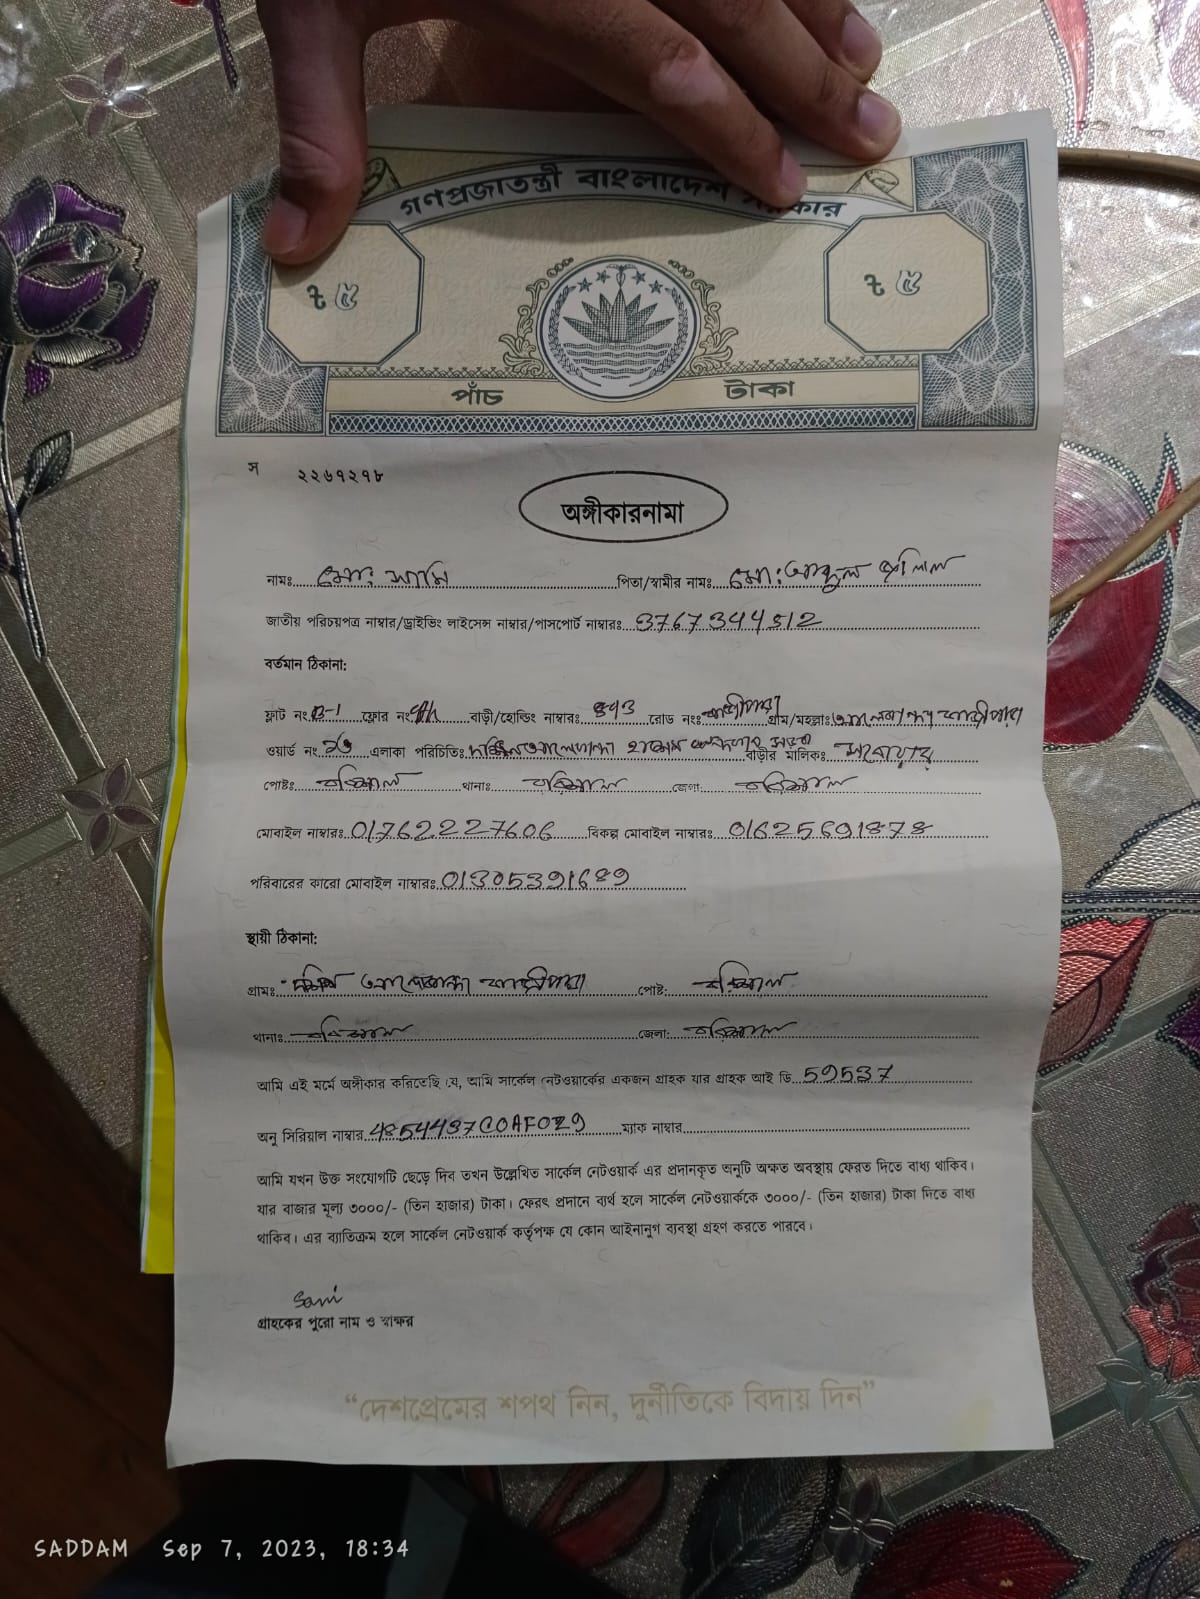 গণপ্রজাতন্ত্রী বাংলাদেশ সরকার
৳ ৫
৳ ৫
পাঁচ টাকা
স ২২৬৭২৭৮
অঙ্গীকারনামা
নামঃ মোঃ সামি পিতা/স্বামীর নামঃ মোঃ আব্দুল জলিল
জাতীয় পরিচয়পত্র নাম্বার/ড্রাইভিং লাইসেন্স নাম্বার/পাসপোর্ট নাম্বারঃ 3767344512
বর্তমান ঠিকানা:
ফ্লাট নং B-1 ফ্লোর নং বাড়ী/হোল্ডিং নাম্বারঃ রোড নংঃ কাজীপাড়া গ্রাম/মহল্লাঃ আলেকান্দা কাজীপাড়া
ওয়ার্ড নং এলাকা পরিচিতিঃ দক্ষিন আলেকান্দা বাড়ীর মালিকঃ
পোষ্টঃ বরিশাল থানাঃ বরিশাল জেলা বরিশাল
মোবাইল নাম্বারঃ 01762227606 বিকল্প মোবাইল নাম্বারঃ 01625691878
পরিবারের কারো মোবাইল নাম্বারঃ 01305391689
স্থায়ী ঠিকানা:
গ্রামঃ দক্ষিন আলেকান্দা কাজীপাড়া পোষ্ট: বরিশাল
থানাঃ বরিশাল জেলা: বরিশাল
আমি এই মর্মে অঙ্গীকার করিতেছি যে, আমি সার্কেল নেটওয়ার্কের একজন গ্রাহক যার গ্রাহক আই ডি 59537
অনু সিরিয়াল নাম্বার 4854437C0AF029 ম্যাক নাম্বার
আমি যখন উক্ত সংযোগটি ছেড়ে দিব তখন উল্লেখিত সার্কেল নেটওয়ার্ক এর প্রদানকৃত অনুটি অক্ষত অবস্থায় ফেরত দিতে বাধ্য থাকিব।
যার বাজার মূল্য ৩০০০/- (তিন হাজার) টাকা। ফেরৎ প্রদানে ব্যর্থ হলে সার্কেল নেটওয়ার্ককে ৩০০০/- (তিন হাজার) টাকা দিতে বাধ্য
থাকিব। এর ব্যাতিক্রম হলে সার্কেল নেটওয়ার্ক কর্তৃপক্ষ যে কোন আইনানুগ ব্যবস্থা গ্রহণ করতে পারবে।
Sami
গ্রাহকের পুরো নাম ও স্বাক্ষর
“দেশপ্রেমের শপথ নিন, দুর্নীতিকে বিদায় দিন”
SADDAM Sep 7, 2023, 18:34